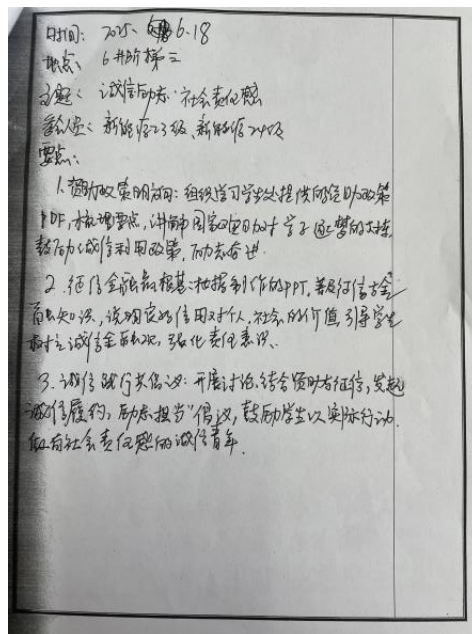 时间: 2025、6.18
地点: 6井阶梯三
主题: 诚信励志·社会责任感
参会人员: 新能源23级、新能源24级
要点:
1. 资助政策明方向: 组织学习学生处提供的资助政策
PDF, 梳理要点, 讲解国家资助对学子逐梦的支撑,
鼓励诚信利用政策, 励志奋进.
2. 征信金融知识根基: 根据制作的PPT, 普及征信
知识, 说明良好信用对个人、社会的价值, 引导学生
树立诚信金融观, 强化责任意识.
3. 诚信践行共倡议: 开展讨论, 结合资助与征信, 发起
"诚信履约, 励志担当"倡议, 鼓励学生以实际行动,
做有社会责任感的诚信青年.